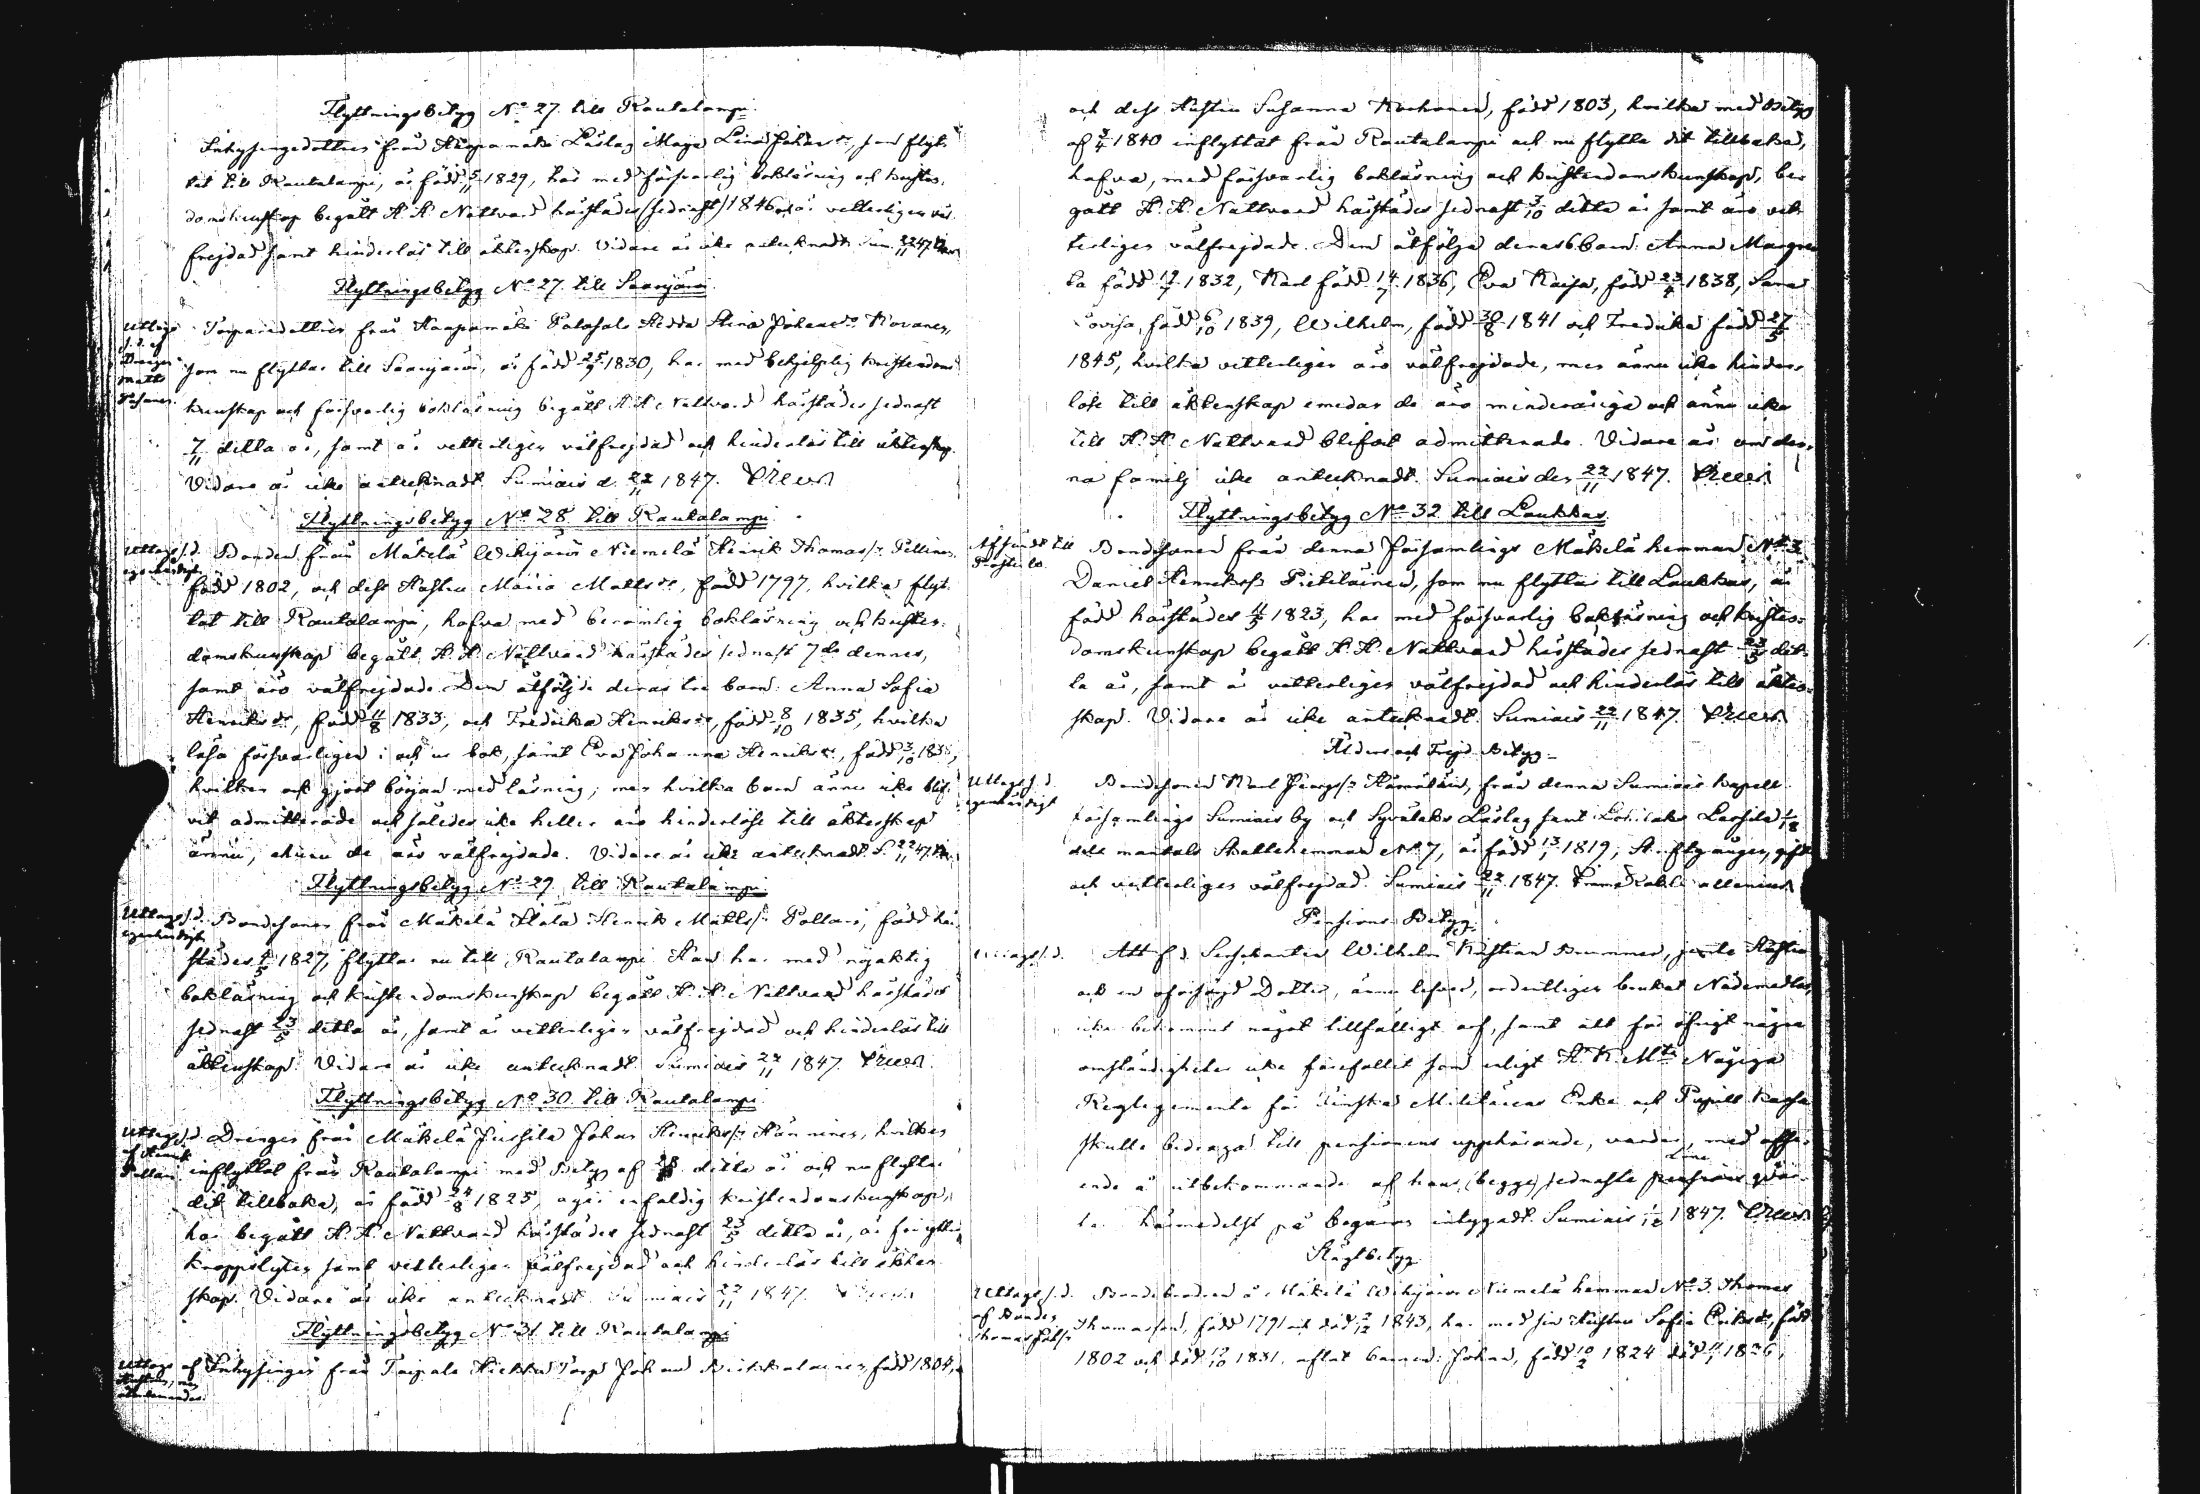 Flyttningsbetyg No 27 till Rautalampi.
Inhysingedottren från Haapamäki Låslag Maja Lena Johansdr, som flyt-
tat till Rautalampi, är född 5/11 1829, har med försvarlig bokläsning och kristen-
domskunskap begått H. H. Nattvard härstädes sednast 1846 och är vetterligen väl-
frejdad samt hinderlös till äktenskap. Vidare är icke antecknadt. Sum. 22/11 47
Flyttningsbetyg No 27 till Saarijärvi.
Uttags s. d. af Drengen Matts
Torparedottren från Haapamäki Hedda Stina Johansdr Kovanen,
som nu flyttar till Saarijärvi, är född 25/7 1830, har med behjelplig kristendoms
kunskap och försvarlig bokläsning begått H. H. Nattvard härstädes sednast
7/11 detta år, samt är vetterligen välfrejdad och hinderlös till äktenskap.
Vidare är icke antecknadt. Sumiais d. 22/11 1847.
Flyttningsbetyg No 28 till Rautalampi.
Uttags s. d. egenhändigt
Bonden från Mäkelä Wehijärvi Niemelä Henrik Thomass:n
född 1802, och dess Hustru Maria Mattsdr, född 1797, hvilka flyt-
tat till Rautalampi, hafva med berömlig bokläsning och kristen-
domskunskap begått H. H. Nattvard härstädes sednast 7de dennes,
samt äro välfrejdade. Dem åtföljde deras tre barn: Anna Sofia
Henriksdr, född 11/8 1833, och Fredrika Henriksdr, född 8/10 1835, hvilka
läsa försvarligen i och ur bok, samt Eva Johanna Henriksdr, född 3/10
hvilken ock gjort början med läsning; men hvilka barn ännu icke blif-
vit admitterade och således icke heller äro hinderlöse till äktenskap
ännu, ehuru de äro välfrejdade. Vidare är icke antecknadt. S. 22/11 47
Flyttningsbetyg No 29 till Rautalampi.
Uttags s. d. egenhändigt
Bondesonen från Mäkelä Henrik Mattss:n Pollari, född här-
städes 1827, flyttar nu till Rautalampi. Han har med nöjaktig
bokläsning och kristendomskunskap begått H. H. Nattvard härstädes
sednast 23/5 detta år, samt är vetterligen välfrejdad och hinderlös till
äktenskap. Vidare är icke antecknadt. Sumiais 22/11 1847.
Flyttningsbetyg No 30 till Rautalampi.
Uttags s. d. af Henrik Pollari
Drengen från Mäkelä Jussila Johan Henrikss:n Hänninen, hvilken
inflyttat från Rautalampi med Betyg af detta år och nu flyttar
dit tillbaka, är född 24/8 1825, äger enfaldig kristendomskunskap,
har begått H. H. Nattvard härstädes sednast 23/5 detta år, är fri ifrån
kroppslyten samt vetterligen välfrejdad och hinderlös till äkten-
skap. Vidare är icke antecknadt. Sumiais 22/11 1847.
Flyttningsbetyg No 31 till Rautalampi.
Uttags af
Inhysingen från Taipale Torp Johan född 1804,
och dess Hustru Susanna Korhonen, född 1803, hvilka med Betyg
af 1840 inflyttat från Rautalampi och nu flytta dit tillbaka,
hafva, med försvarlig bokläsning och kristendomskunskap, be-
gått H. H. Nattvard härstädes sednast 3/10 detta år samt äro vet-
terligen välfrejdade. Dem åtfölja deras 6 barn: Anna Margre-
ta född 12/7 1832, Karl född 14/7 1836, Eva Kaisa, född 23/4 1838, Sara
Lovisa, född 6/10 1839, Wilhelm, född 30/8 1841 och Fredrika född 27/5
1845, hvilka vetterligen äro välfrejdade, men ännu icke hinder-
löse till äktenskap emedan de äro minderåriga och ännu icke
till H. H. Nattvard blifvit admitterade. Vidare är om den-
na familj icke antecknadt. Sumiais den 22/11 1847.
Flyttningsbetyg No 32 till Laukkas.
Afsändt till
Bondesonen från denna församlings Mäkelä hemman No 3
Daniel Henrikss:n Pietiläinen, som nu flyttar till Laukkas, är
född härstädes 1823, har med försvarlig bokläsning och kristen-
domskunskap begått H. H. Nattvard härstädes sednast 23/5 det-
ta år, samt är vetterligen välfrejdad och hinderlös till äkten-
skap. Vidare är icke antecknadt. Sumiais 22/11 1847.
Ålders och Frejd Betyg.
Uttags s. d. egenhändigt
Bondesonen Karl Hämäläinen, från denna Sumiais Kapell
församlings Sumiais by och Låslag samt
dels mantals Skattehemman No 7, är född 13/1 1819,
och vetterligen välfrejdad. Sumiais 22/11 1847.
Pensions Betyg.
Uttags s. d.
Att f. d. Wilhelm Kristian Brummer, jemte Hustru
och en oförsörjd Dotter, ännu lefver, ordentligen brukat Nådemedlen,
icke bekommit något tillfälligt arf, samt att för öfrigt några
omständigheter icke förefallit som enligt H. K. Mts Nådiga
Reglemente för Finska Militairens Enke och Pupill Kassa
skulle bidraga till pensionens upphörande, varder, med afse-
ende å utbekommande af hans (begge) sednaste pensions qvar-
ta härmedelst på begäran intygadt. Sumiais 1/12 1847.
Slägtbetyg.
Uttags s. d. af Bonden
Bondebonden å Mäkelä Wehijärvi Niemelä hemman No 3. Thomas
Thomasson, född 1791 och död 1843, har med sin Hustru Sofia Eriksdr, född
1802 och död 12/10 1831, aflat barnen: Johan, född 10/2 1824 död 1826,